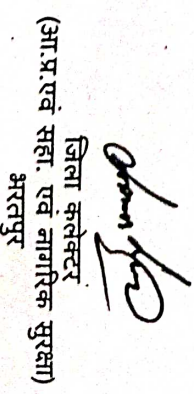 जिला कलेक्टर
(आ.प्र.एवं सहा. एवं नागरिक सुरक्षा)
भरतपुर